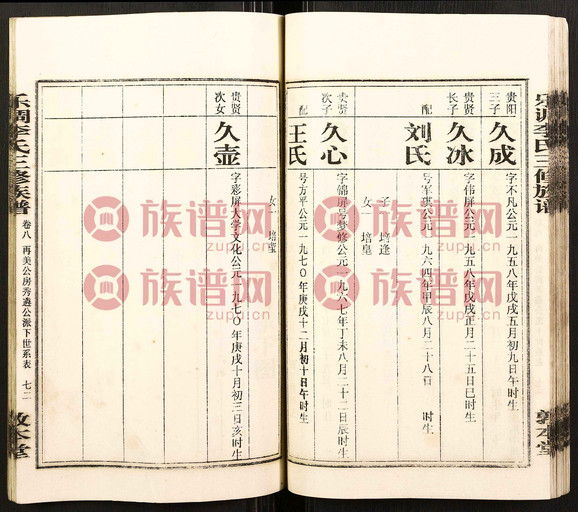 乐调李氏三修族谱
敦本堂
贵阳三子
久成
字不凡公元一九五八年戊戌五月初九日午时生
贵贤长子
久冰
字伟屏公元一九五八年戊戌正月二十五日巳时生
配
刘氏
号军琪公元一九六四年甲辰八月二十八日 时生
子 培逢
女一 培皇
贵贤次子
久心
字锦屏号梦修公元一九六七年丁未八月二十二日辰时生
配
王氏
号方平公元一九七〇年庚戌十二月初十日午时生
女一 培莹
贵贤次女
久壶
字彩屏大学文化公元一九七〇年庚戌十月初三日亥时生
乐调李氏三修族谱
卷八 再美公房秀遴公派下世系表 七二
敦本堂
族谱网
zupu.cn
族谱网
zupu.cn
族谱网
zupu.cn
族谱网
zupu.cn